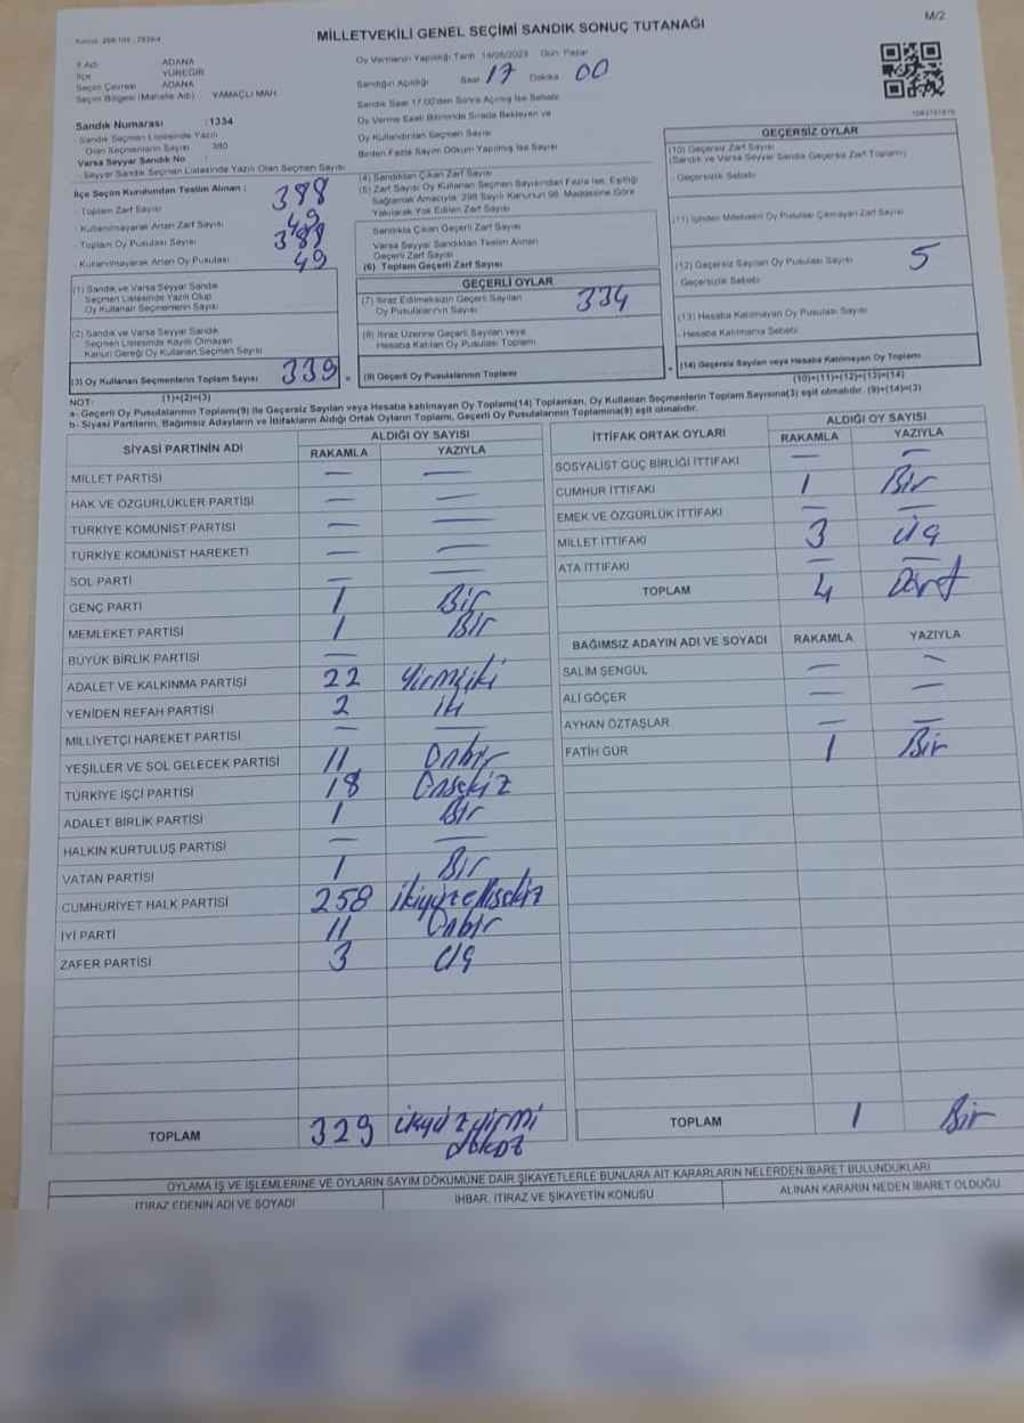 M/2
MİLLETVEKİLİ GENEL SEÇİMİ SANDIK SONUÇ TUTANAĞI
İl Adı ADANA
İlçe YÜREĞİR
Seçim Çevresi ADANA
Seçim Bölgesi (Mahalle Adı) YAMAÇLI MAH.
Oy Vermenin Yapıldığı Tarih 14/05/2023 Gün Pazar
Sandığın Açıldığı Saat 17 Dakika 00
Sandık Saat 17.00'den Sonra Açılmış İse Sebebi
Oy Verme Saati Bitiminde Sırada Bekleyen ve
Oy Kullandırılan Seçmen Sayısı
Birden Fazla Sayım Döküm Yapılmış İse Sayısı
Sandık Numarası :1334
Sandık Seçmen Listesinde Yazılı
Olan Seçmenlerin Sayısı 380
Varsa Seyyar Sandık No :
Seyyar Sandık Seçmen Listesinde Yazılı Olan Seçmen Sayısı
İlçe Seçim Kurulundan Teslim Alınan :
Toplam Zarf Sayısı 388
Kullanılmayarak Artan Zarf Sayısı 49
Toplam Oy Pusulası Sayısı 388
Kullanılmayarak Artan Oy Pusulası 49
(1) Sandık ve Varsa Seyyar Sandık
Seçmen Listesinde Yazılı Olup
Oy Kullanan Seçmenlerin Sayısı
(2) Sandık ve Varsa Seyyar Sandık
Seçmen Listesinde Kayıtlı Olmayan
Kanun Gereği Oy Kullanan Seçmen Sayısı
(3) Oy Kullanan Seçmenlerin Toplam Sayısı 339
(1)+(2)=(3)
(4) Sandıktan Çıkan Zarf Sayısı
(5) Zarf Sayısı Oy Kullanan Seçmen Sayısından Fazla İse, Eşitliği
Sağlamak Amacıyla, 298 Sayılı Kanunun 98. Maddesine Göre
Yakılarak Yok Edilen Zarf Sayısı
Sandıkta Çıkan Geçerli Zarf Sayısı
Varsa Seyyar Sandıktan Teslim Alınan
Geçerli Zarf Sayısı
(6) Toplam Geçerli Zarf Sayısı
GEÇERLİ OYLAR
(7) İtiraz Edilmeksizin Geçerli Sayılan
Oy Pusulalarının Sayısı 334
(8) İtiraz Üzerine Geçerli Sayılan veya
Hesaba Katılan Oy Pusulası Toplamı
(9) Geçerli Oy Pusulalarının Toplamı
GEÇERSİZ OYLAR
(10) Geçersiz Zarf Sayısı
(Sandık ve Varsa Seyyar Sandık Geçersiz Zarf Toplamı)
Geçersizlik Sebebi
(11) İçinden Milletvekili Oy Pusulası Çıkmayan Zarf Sayısı
(12) Geçersiz Sayılan Oy Pusulası Sayısı 5
Geçersizlik Sebebi
(13) Hesaba Katılmayan Oy Pusulası Sayısı
Hesaba Katılmama Sebebi
(14) Geçersiz Sayılan veya Hesaba Katılmayan Oy Toplamı
(10)+(11)+(12)+(13)=(14)
NOT:
a- Geçerli Oy Pusulalarının Toplamı(9) ile Geçersiz Sayılan veya Hesaba katılmayan Oy Toplamı(14) Toplamları, Oy Kullanan Seçmenlerin Toplam Sayısına(3) eşit olmalıdır. (9)+(14)=(3)
b- Siyasi Partilerin, Bağımsız Adayların ve İttifakların Aldığı Ortak Oyların Toplamı, Geçerli Oy Pusulalarının Toplamına(9) eşit olmalıdır.
SİYASİ PARTİNİN ADI ALDIĞI OY SAYISI
RAKAMLA YAZIYLA
MİLLET PARTİSİ — —
HAK VE ÖZGÜRLÜKLER PARTİSİ — —
TÜRKİYE KOMÜNİST PARTİSİ — —
TÜRKİYE KOMÜNİST HAREKETİ — —
SOL PARTİ — —
GENÇ PARTİ 1 Bir
MEMLEKET PARTİSİ 1 Bir
BÜYÜK BİRLİK PARTİSİ —
ADALET VE KALKINMA PARTİSİ 22 Yirmiiki
YENİDEN REFAH PARTİSİ 2 iki
MİLLİYETÇİ HAREKET PARTİSİ — —
YEŞİLLER VE SOL GELECEK PARTİSİ 11 Onbir
TÜRKİYE İŞÇİ PARTİSİ 18 Onsekiz
ADALET BİRLİK PARTİSİ 1 Bir
HALKIN KURTULUŞ PARTİSİ — —
VATAN PARTİSİ 1 Bir
CUMHURİYET HALK PARTİSİ 258 ikiyüzellisekiz
İYİ PARTİ 11 Onbir
ZAFER PARTİSİ 3 Üç
TOPLAM 329
İTTİFAK ORTAK OYLARI ALDIĞI OY SAYISI
RAKAMLA YAZIYLA
SOSYALİST GÜÇ BİRLİĞİ İTTİFAKI — —
CUMHUR İTTİFAKI 1 Bir
EMEK VE ÖZGÜRLÜK İTTİFAKI — —
MİLLET İTTİFAKI 3 üç
ATA İTTİFAKI — —
TOPLAM 4 Dört
BAĞIMSIZ ADAYIN ADI VE SOYADI RAKAMLA YAZIYLA
SALİM ŞENGÜL — —
ALİ GÖÇER — —
AYHAN ÖZTAŞLAR — —
FATİH GÜR 1 Bir
TOPLAM 1 Bir
OYLAMA İŞ VE İŞLEMLERİNE VE OYLARIN SAYIM DÖKÜMÜNE DAİR ŞİKAYETLERLE BUNLARA AİT KARARLARIN NELERDEN İBARET BULUNDUKLARI
İTİRAZ EDENİN ADI VE SOYADI İHBAR, İTİRAZ VE ŞİKAYETİN KONUSU ALINAN KARARIN NEDEN İBARET OLDUĞU